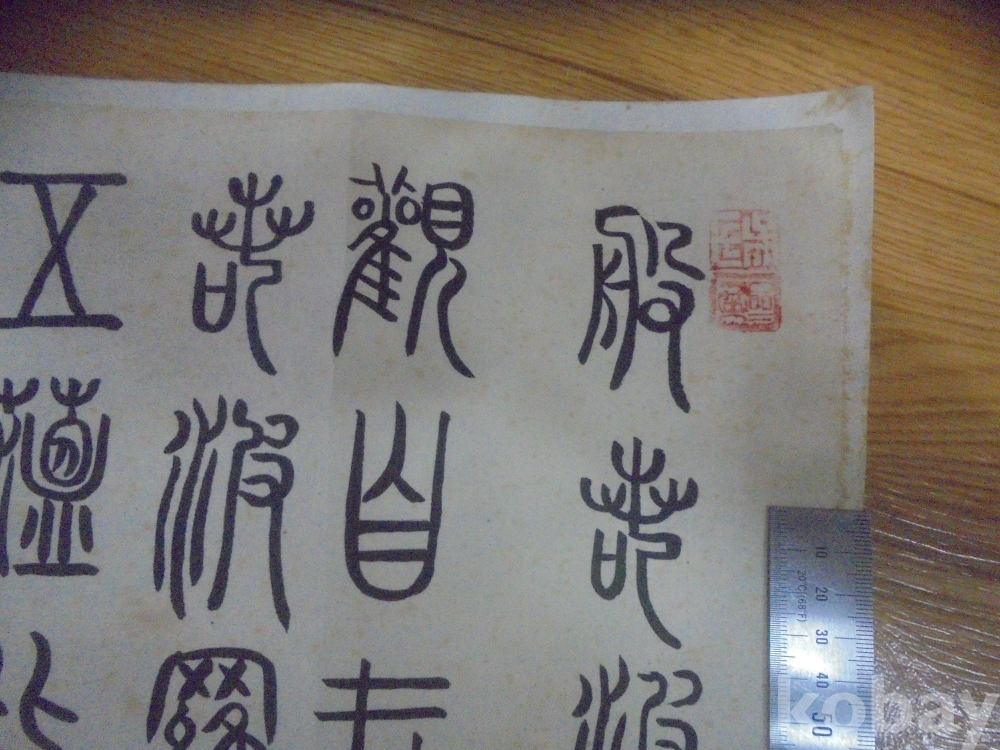 般若波
觀自在
若波羅
五蘊
10 20 30 40 50
20°C(68°F)
kobay